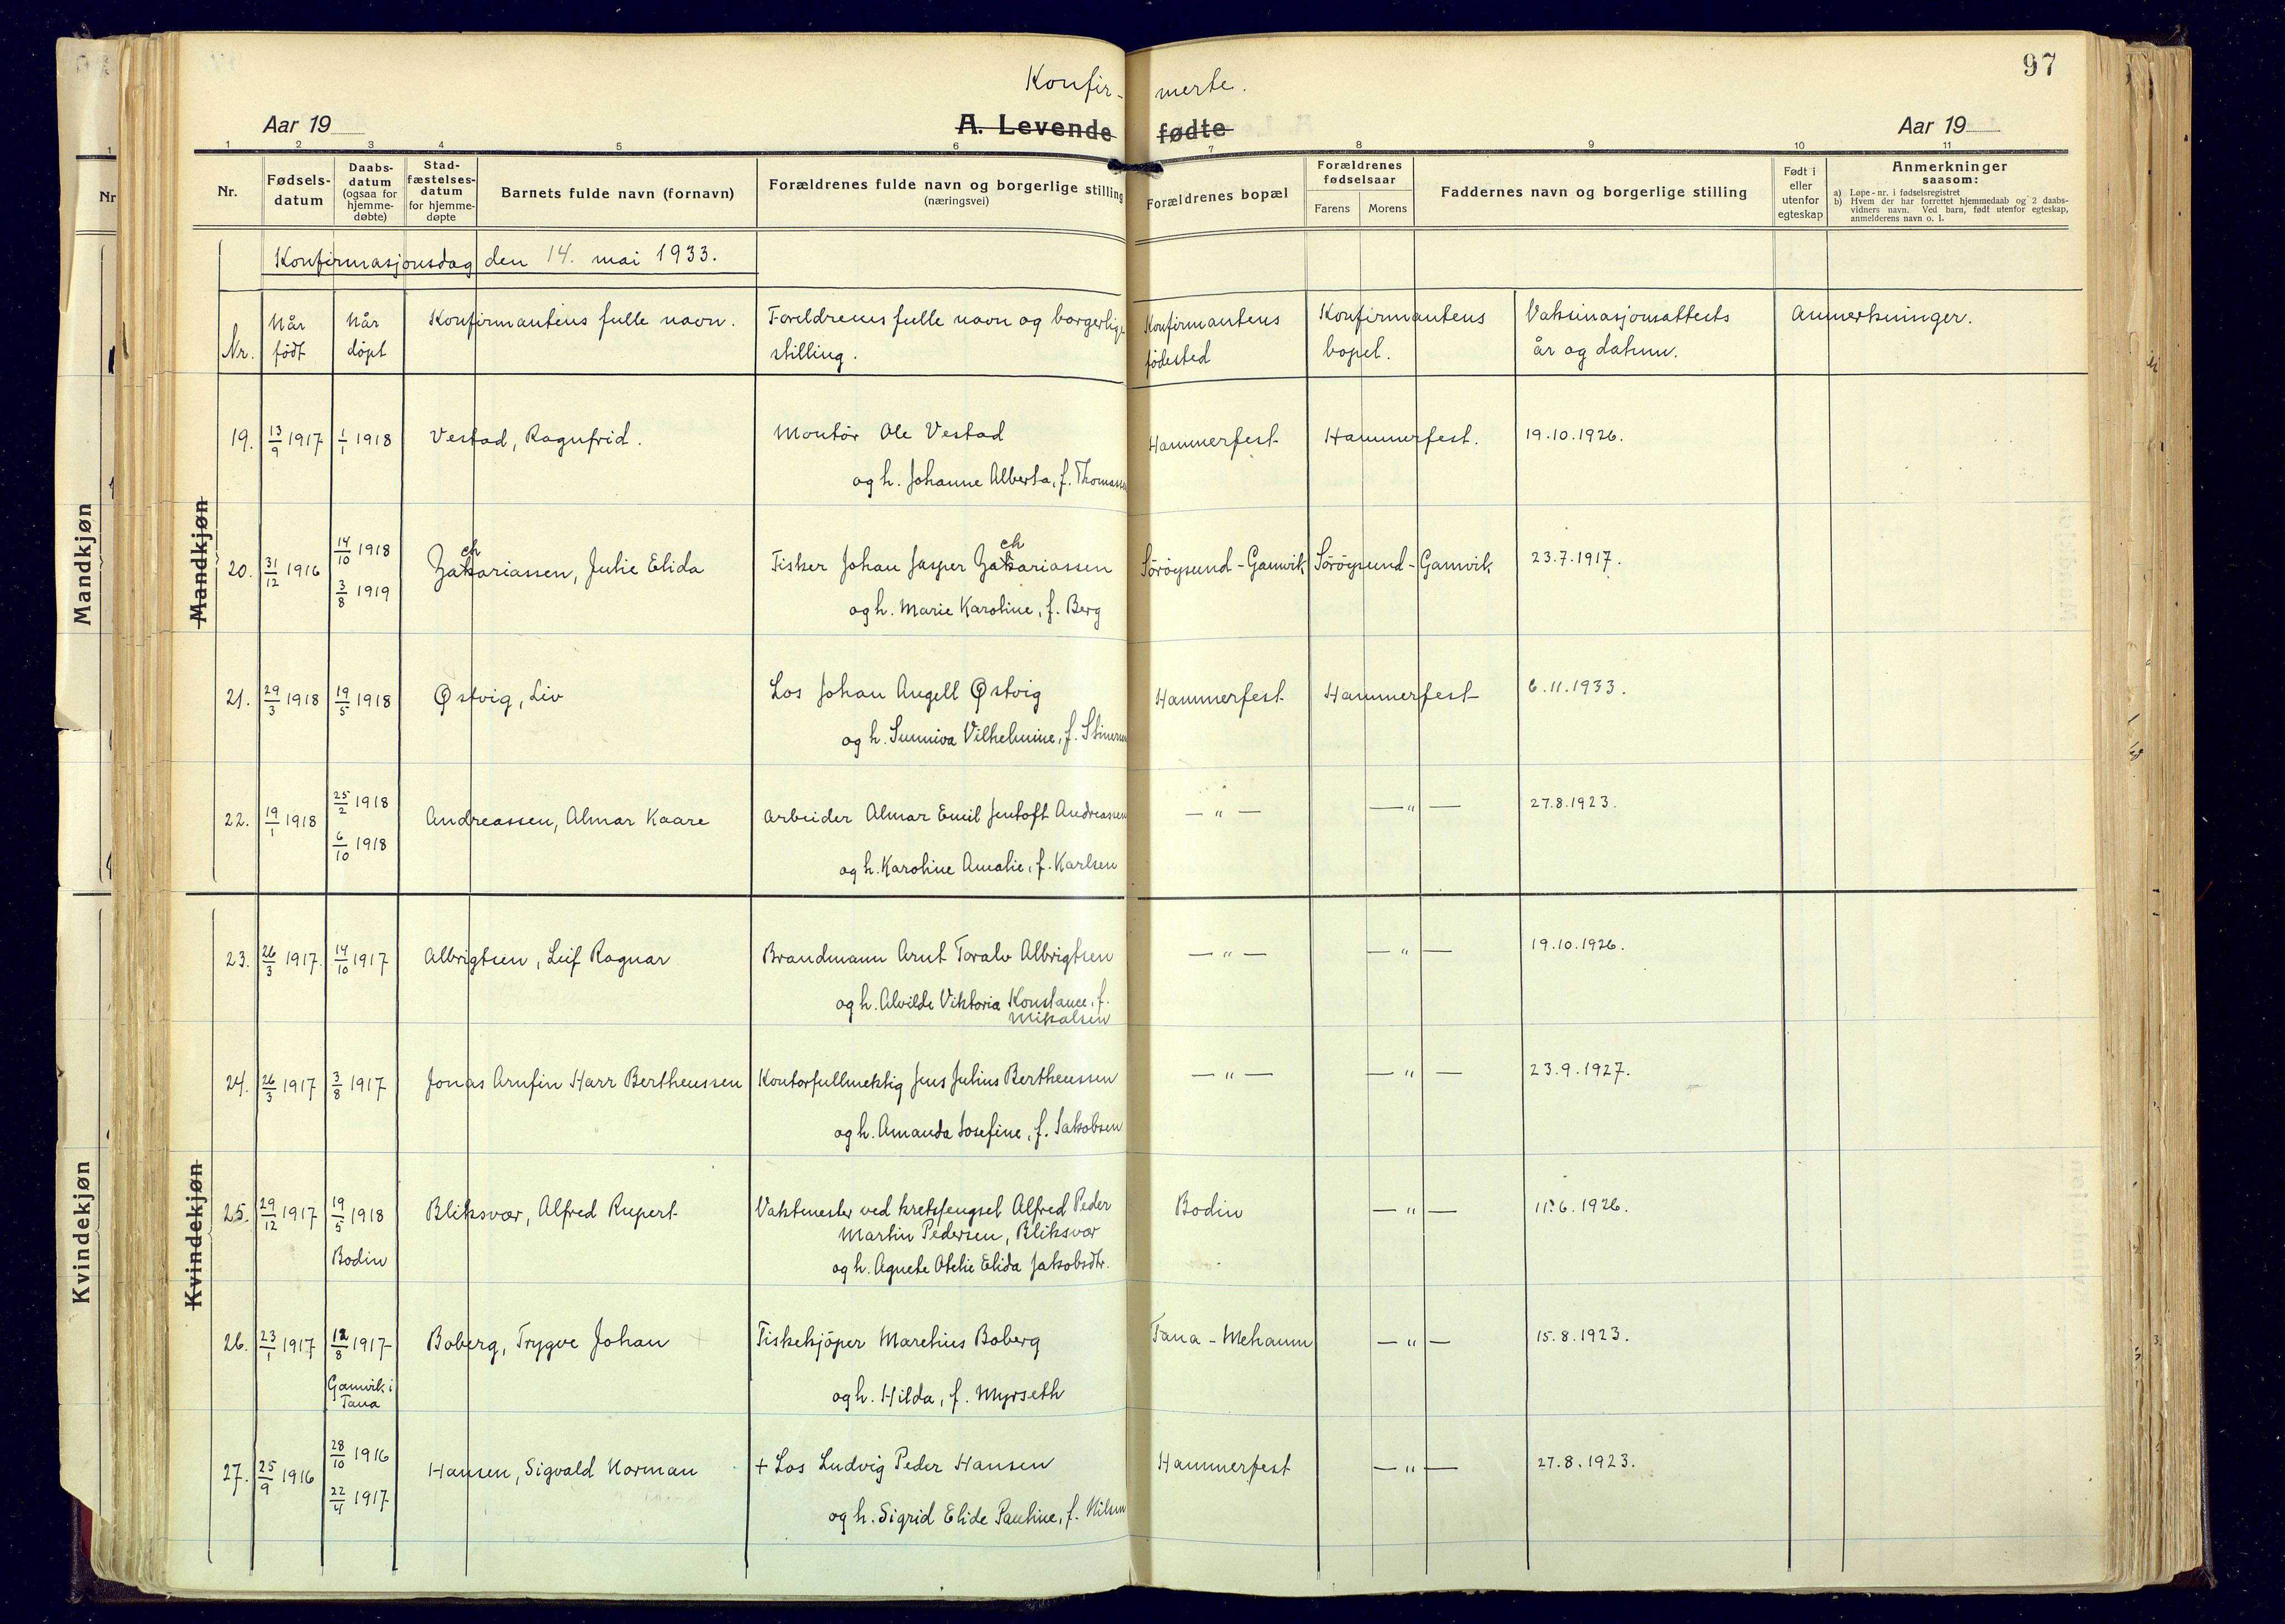 97
Konfir- merte.
Aar 19
A. Levende fødte
Aar 19
1 2 3 4 5 6 7 8 9 10 11
Nr.
Fødsels-datum
Daabs-datum (ogsaa for hjemme-døbte)
Stad-fæstelses-datum for hjemme-døpte
Barnets fulde navn (fornavn)
Forældrenes fulde navn og borgerlige stilling (næringsvei)
Forældrenes bopæl
Forældrenes fødselsaar
Farens Morens
Faddernes navn og borgerlige stilling
Født i eller utenfor egteskap
Anmerkninger
saasom:
a) Løpe-nr. i fødselsregistret
b) Hvem der har forrettet hjemmedaab og 2 daabs-
vidners navn. Ved barn, født utenfor egteskap,
anmelderens navn o. l.
Konfirmasjonsdag den 14. mai 1933.
Nr.
Når født
Når døpt
Konfirmantens fulle navn.
Foreldrenes fulle navn og borgerlige
stilling.
Konfirmantens
fødested
Konfirmantens
bopel.
Vaksinasjonsattests
år og datum.
Anmerkninger.
Mandkjøn
Mandkjøn
19. 13/9 1917 1/1 1918 Vestad, Ragnfrid. Montør Ole Vestad Hammerfest Hammerfest. 19.10.1926.
og h. Johanne Alberta, f. Thomassen
20. 31/12 1916 14/10 1918 3/8 1919 Zakariassen, Julie Elida Fisker Johan Jasper Zakariassen Sørøysund - Gamvik Sørøysund - Gamvik 23.7.1917.
ch ch
og h. Marie Karoline, f. Berg
21. 29/3 1918 19/5 1918 Østvig, Liv Los Johan Angell Østvig Hammerfest Hammerfest 6.11.1933.
og h. Sunniva Vilhelmine, f.
22. 19/1 1918 25/2 1918 6/10 1918 Andreassen, Almar Kaare Arbeider Almar Emil Jentoft Andreassen — " — — " — 27.8.1923.
og h. Karoline Amalie, f. Karlsen
Kvindekjøn
Kvindekjøn
23. 26/3 1917 14/10 1917 Albrigtsen, Leif Ragnar Brandmann Arnt Toralv Albrigtsen — " — — " — 19.10.1926.
og h. Alvilde Viktoria Konstance, f.
Mikalsen
24. 26/3 1917 3/8 1917 Jonas Arnfin Harr Bertheussen Kontorfullmektig Jens Julius Bertheussen — " — — " — 23.9.1927.
og h. Amanda Josefine, f. Jakobsen
25. 29/12 1917 19/5 1918 Bliksvær, Alfred Rupert Vaktmester ved kretsfengsel Alfred Peder Bodin — " — 11.6.1926.
Martin Pedersen, Bliksvær
Bodin
og h. Agnete Otelie Elida Jakobsdtr.
26. 23/1 1917 12/8 1917 Boberg, Trygve Johan Fiskekjøper Marelius Boberg Tana - Mehamn — " — 15.8.1923.
Gamvik i
Tana
og h. Hilda, f. Myrseth
27. 25/9 1916 28/10 1916 22/4 1917 Hansen, Sigvald Norman + Los Ludvig Peder Hansen Hammerfest — " — 27.8.1923.
og h. Sigrid Elide Pauline, f. Nilsen